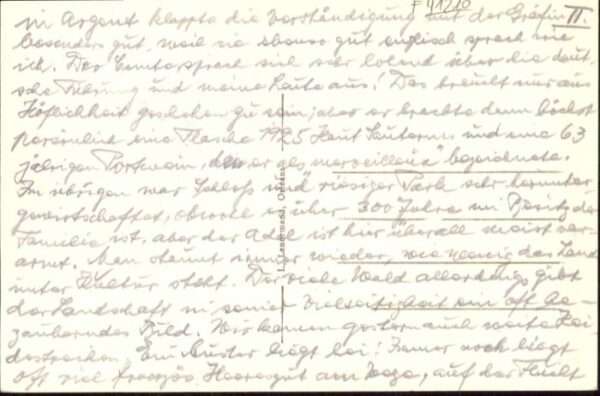 F 11210
II.
in Argent klappte die Verständigung mit der Gräfin
besonders gut, weil sie ebenso gut englisch sprach wie
ich. Der Comte sprach sich sehr lobend über die deut-
sche Führung und meine Leute aus! Das braucht nur aus
Höflichkeit geschehen zu sein, aber er brachte dann höchst
persönlich eine Flasche 1925 Haut Sauternes und eine 63
jährigen Portwein, den er als "merveilleux" bezeichnete.
Im übrigen war Schloß und riesiger Park sehr herunter
gewirtschaftet, obwohl es über 300 Jahre im Besitz der
Familie ist, aber der Adel ist hier überall meist ver-
armt. Man staunt immer wieder, wie das Land
unter Kultur steht. Der viele Wald allerdings gibt
der Landschaft in seiner Vielseitigkeit ein oft be-
zauberndes Bild. Wir kamen gestern auch weite Hei-
destrecken. Ein Muster liegt bei! Immer noch liegt
oft viel französ Heeresgut am Wege, auf der Flucht